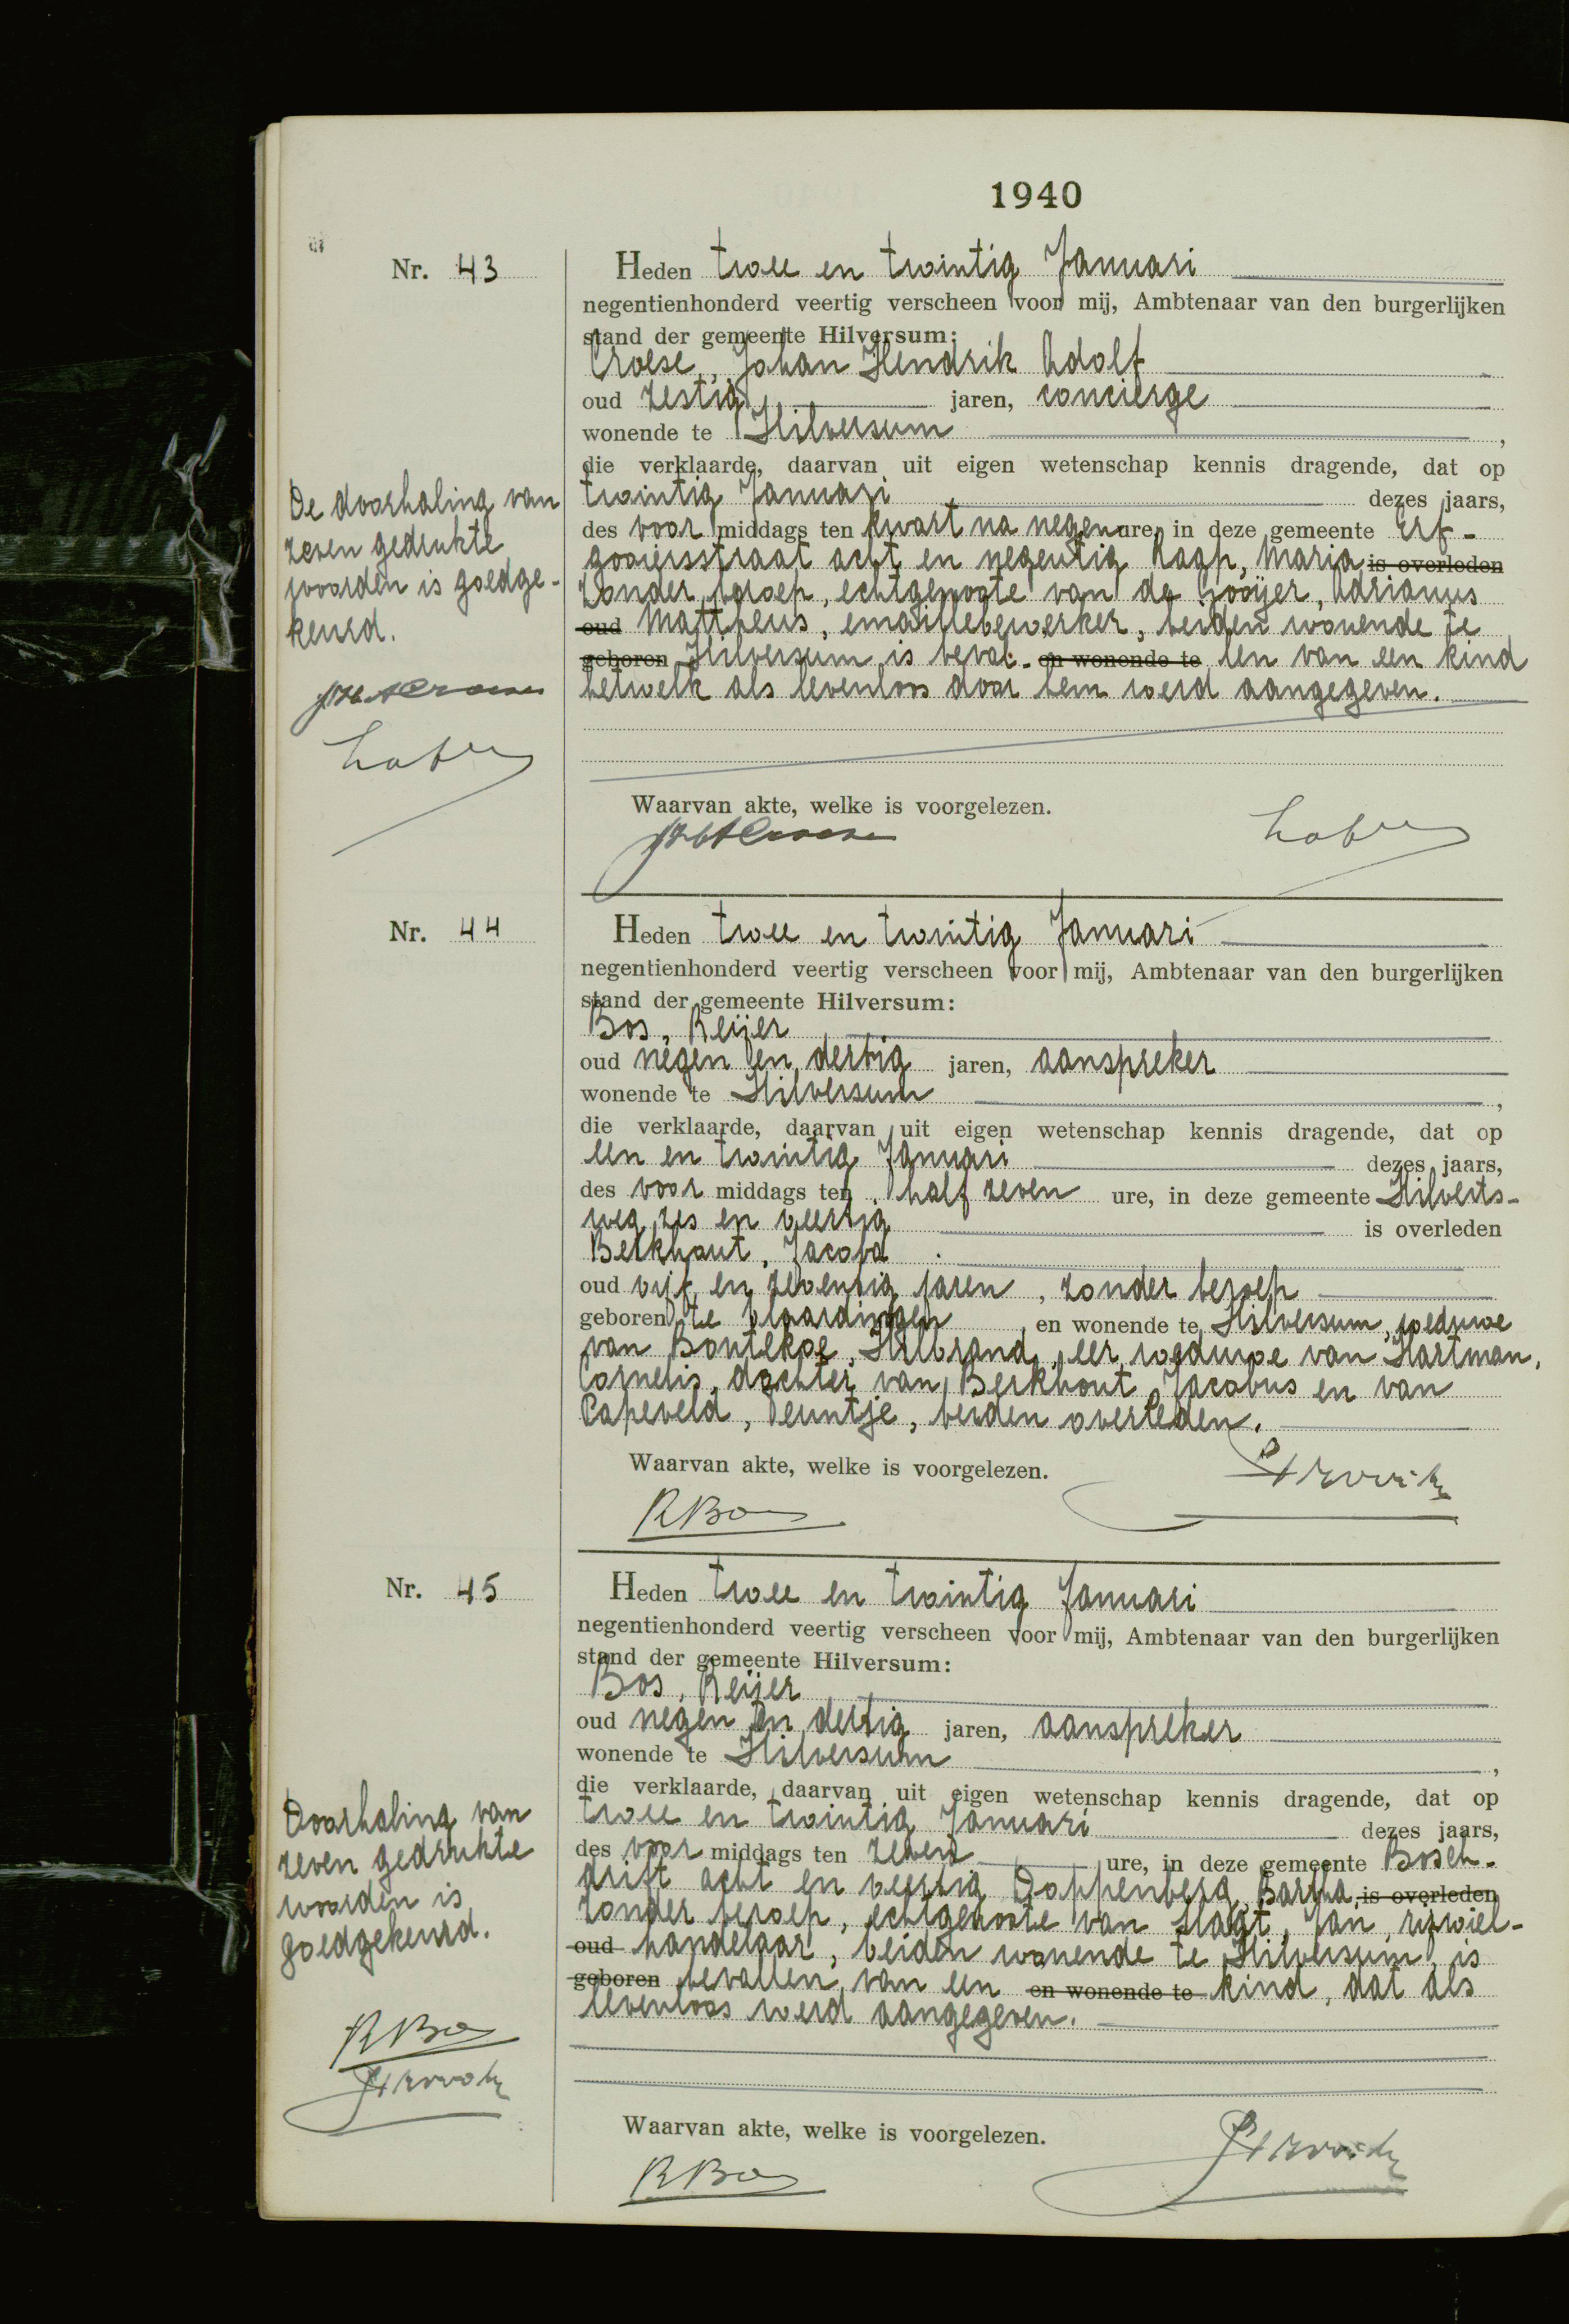 1940
Nr. 43
Heden twee en twintig Januari
negentienhonderd veertig verscheen voor mij, Ambtenaar van den burgerlijken
stand der gemeente Hilversum:
Croese, Johan Hendrik Adolf
oud zestig jaren, concierge
wonende te Hilversum,
die verklaarde, daarvan uit eigen wetenschap kennis dragende, dat op
twintig Januari dezes jaars,
des voor middags ten kwart na negen ure, in deze gemeente Erf-
gooiersstraat acht en negentig Kaap, Maria is overleden
zonder beroep, echtgenoote van de Gooijer, Adrianus
oud Mattheus, emaillebewerker, beiden wonende te
geboren Hilversum is beval- en wonende te len van een kind
hetwelk als levenloos door hem werd aangegeven.
De doorhaling van
zeven gedrukte
woorden is goedge-
keurd.
JHACroese
Waarvan akte, welke is voorgelezen.
JHACroese
Nr. 44
Heden twee en twintig Januari
negentienhonderd veertig verscheen voor mij, Ambtenaar van den burgerlijken
stand der gemeente Hilversum:
Bos, Reijer
oud negen en dertig jaren, aanspreker
wonende te Hilversum,
die verklaarde, daarvan uit eigen wetenschap kennis dragende, dat op
een en twintig Januari dezes jaars,
des voor middags ten half zeven ure, in deze gemeente Hilverts-
weg zes en veertig is overleden
Berkhout, Jacoba
oud vijf en zeventig jaren, zonder beroep
geboren te Vlaardingen, en wonende te Hilversum, weduwe
van Bontekoe, Hilbrand, eer weduwe van Hartman,
Cornelis, dochter van Berkhout, Jacobus en van
Capeveld, Teuntje, beiden overleden.
Waarvan akte, welke is voorgelezen.
RBos
Nr. 45
Heden twee en twintig Januari
negentienhonderd veertig verscheen voor mij, Ambtenaar van den burgerlijken
stand der gemeente Hilversum:
Bos, Reijer
oud negen en dertig jaren, aanspreker
wonende te Hilversum,
die verklaarde, daarvan uit eigen wetenschap kennis dragende, dat op
twee en twintig Januari dezes jaars,
des voor middags ten zeven ure, in deze gemeente Bosch-
drift acht en veertig Doppenberg, Bartha is overleden
zonder beroep, echtgenoote van Slagt, Jan, rijwiel-
oud handelaar, beiden wonende te Hilversum, is
geboren bevallen van een en wonende te kind, dat als
levenloos werd aangegeven.
Doorhaling van
zeven gedrukte
woorden is
goedgekeurd.
RBos
Waarvan akte, welke is voorgelezen.
RBos